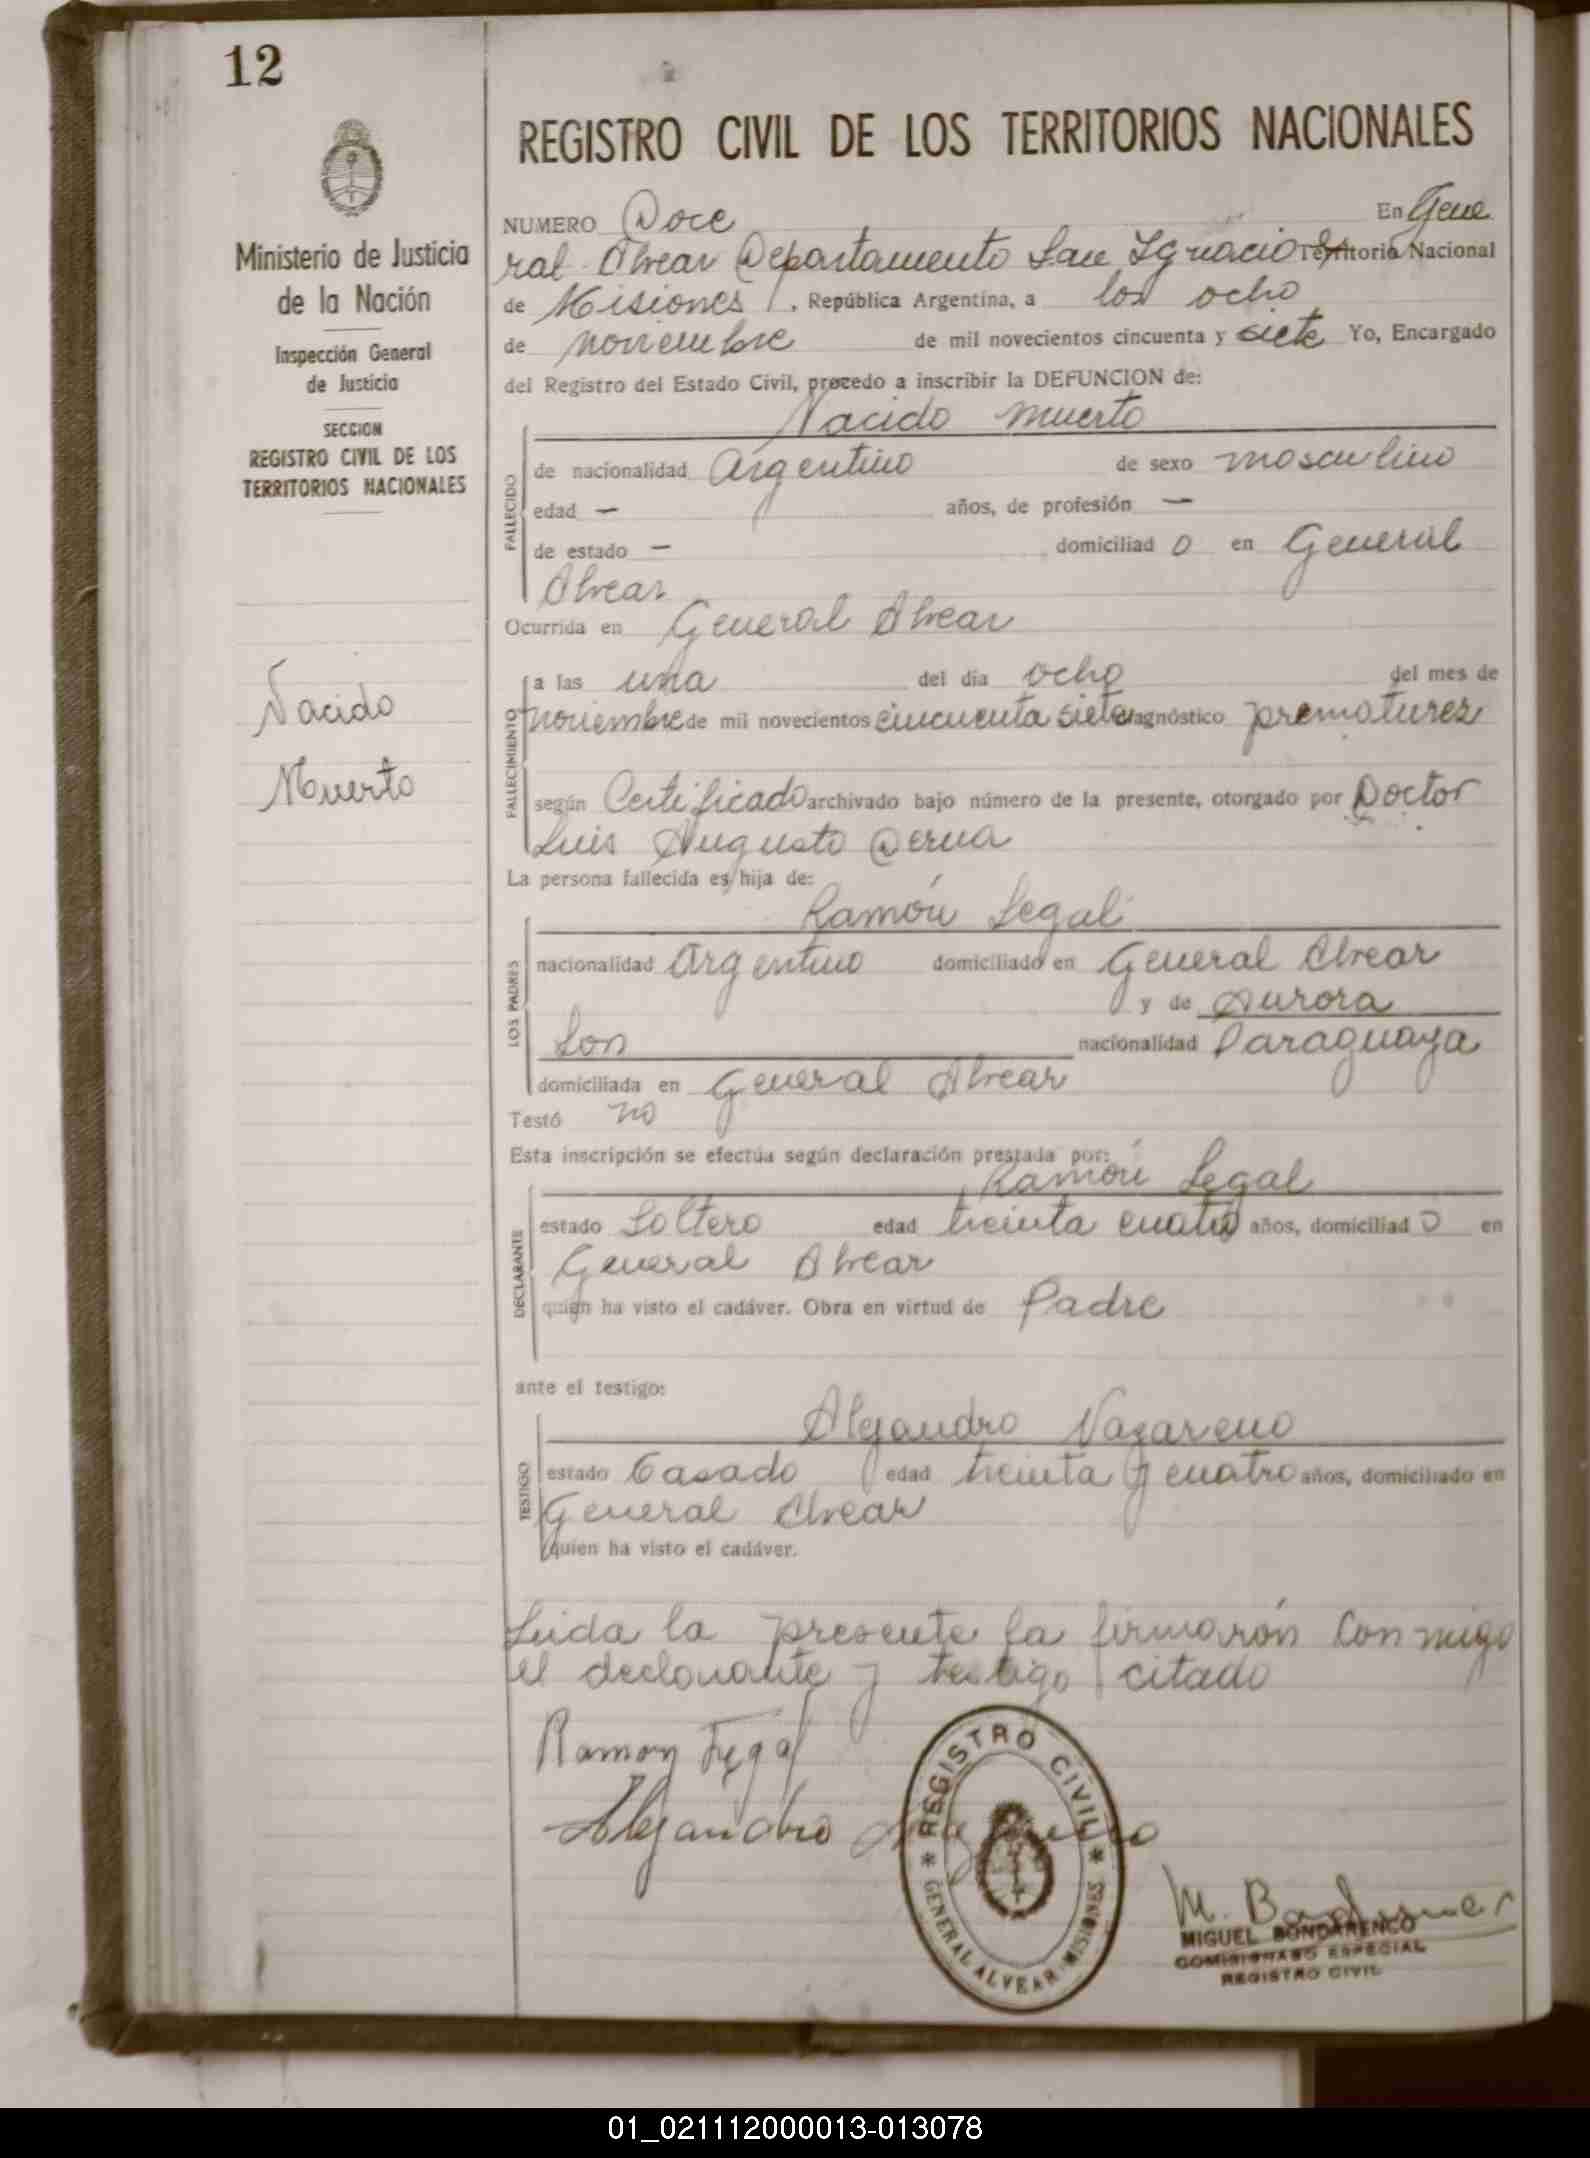 12
REGISTRO CIVIL DE LOS TERRITORIOS NACIONALES
Ministerio de Justicia
de la Nación
Inspección General
de Justicia
SECCION
REGISTRO CIVIL DE LOS
TERRITORIOS NACIONALES
Nacido
Muerto
NUMERO Doce En Gene
ral Alvear Departamento San Ignacio Territorio Nacional
de Misiones, República Argentina, a los ocho
de noviembre de mil novecientos cincuenta y siete Yo, Encargado
del Registro del Estado Civil, procedo a inscribir la DEFUNCION de:
Nacido muerto
FALLECIDO
de nacionalidad Argentino de sexo masculino
edad — años, de profesión —
de estado — domiciliad o en General
Alvear
Ocurrida en General Alvear
FALLECIMIENTO
a las una del día ocho del mes de
noviembre de mil novecientos cincuenta siete diagnóstico prematurez
según Certificado archivado bajo número de la presente, otorgado por Doctor
Luis Augusto Derna
La persona fallecida es hija de:
LOS PADRES
Ramón Legal
nacionalidad Argentino domiciliado en General Alvear
y de Aurora
Lon nacionalidad Paraguaya
domiciliada en General Alvear
Testó no
Esta inscripción se efectúa según declaración prestada por:
DECLARANTE
Ramón Legal
estado Soltero edad treinta cuatro años, domiciliad o en
General Alvear
quien ha visto el cadáver. Obra en virtud de Padre
ante el testigo:
TESTIGO
Alejandro Nazareno
estado Casado edad treinta y cuatro años, domiciliado en
General Alvear
quien ha visto el cadáver.
Leida la presente la firmarón conmigo
el declarante y testigo citado
Ramon Legal
Alejandro
REGISTRO CIVIL
GENERAL ALVEAR MISIONES
M. Bondarenco
MIGUEL BONDARENCO
COMISIONADO ESPECIAL
REGISTRO CIVIL
01_021112000013-013078